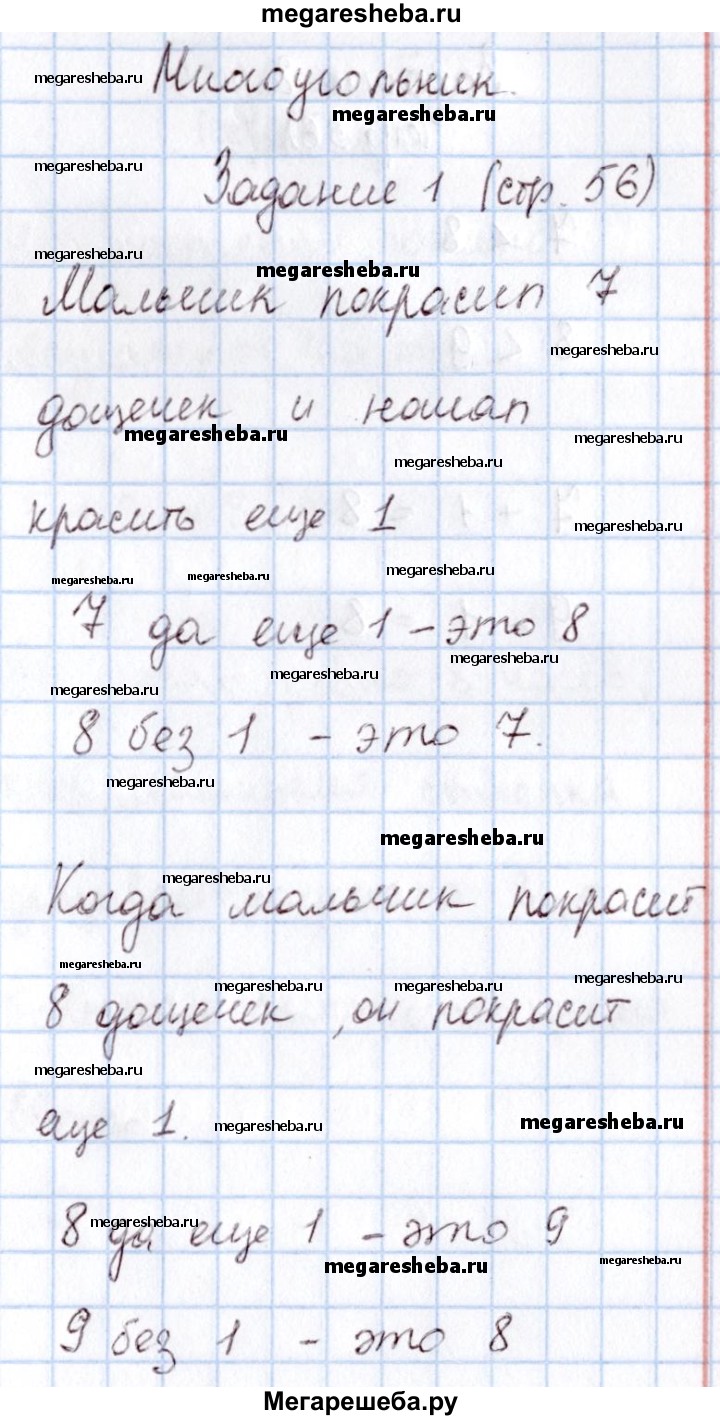 megaresheba.ru
Многоугольник.
megaresheba.ru
megaresheba.ru
Задание 1 (стр. 56)
megaresheba.ru
megaresheba.ru
megaresheba.ru
Мальчик покрасил 7
megaresheba.ru
дощечек и начал
megaresheba.ru
megaresheba.ru
megaresheba.ru
красить еще 1
megaresheba.ru
megaresheba.ru
megaresheba.ru
megaresheba.ru
7 да еще 1 – это 8
megaresheba.ru
megaresheba.ru
megaresheba.ru
8 без 1 – это 7.
megaresheba.ru
megaresheba.ru
megaresheba.ru
Когда мальчик покрасит
megaresheba.ru
megaresheba.ru
megaresheba.ru
megaresheba.ru
8 дощечек, он покрасит
megaresheba.ru
еще 1.
megaresheba.ru
megaresheba.ru
8 да еще 1 – это 9
megaresheba.ru
megaresheba.ru
megaresheba.ru
9 без 1 – это 8
Мегарешеба.ру